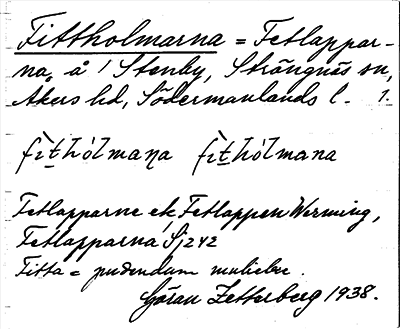 Fittholmarna = Fetlappar-
na, å 1 Stenby, Strängnäs sn,
Åkers hd, Södermanlands l. 1.
fìt̲hólmaṇa fìt̲hólmana
Fetlapparne ek, Fetlappen Werming,
Fetlapparna Sj 242
Fitta = pudendum muliebre.
Göran Zetterberg 1938.